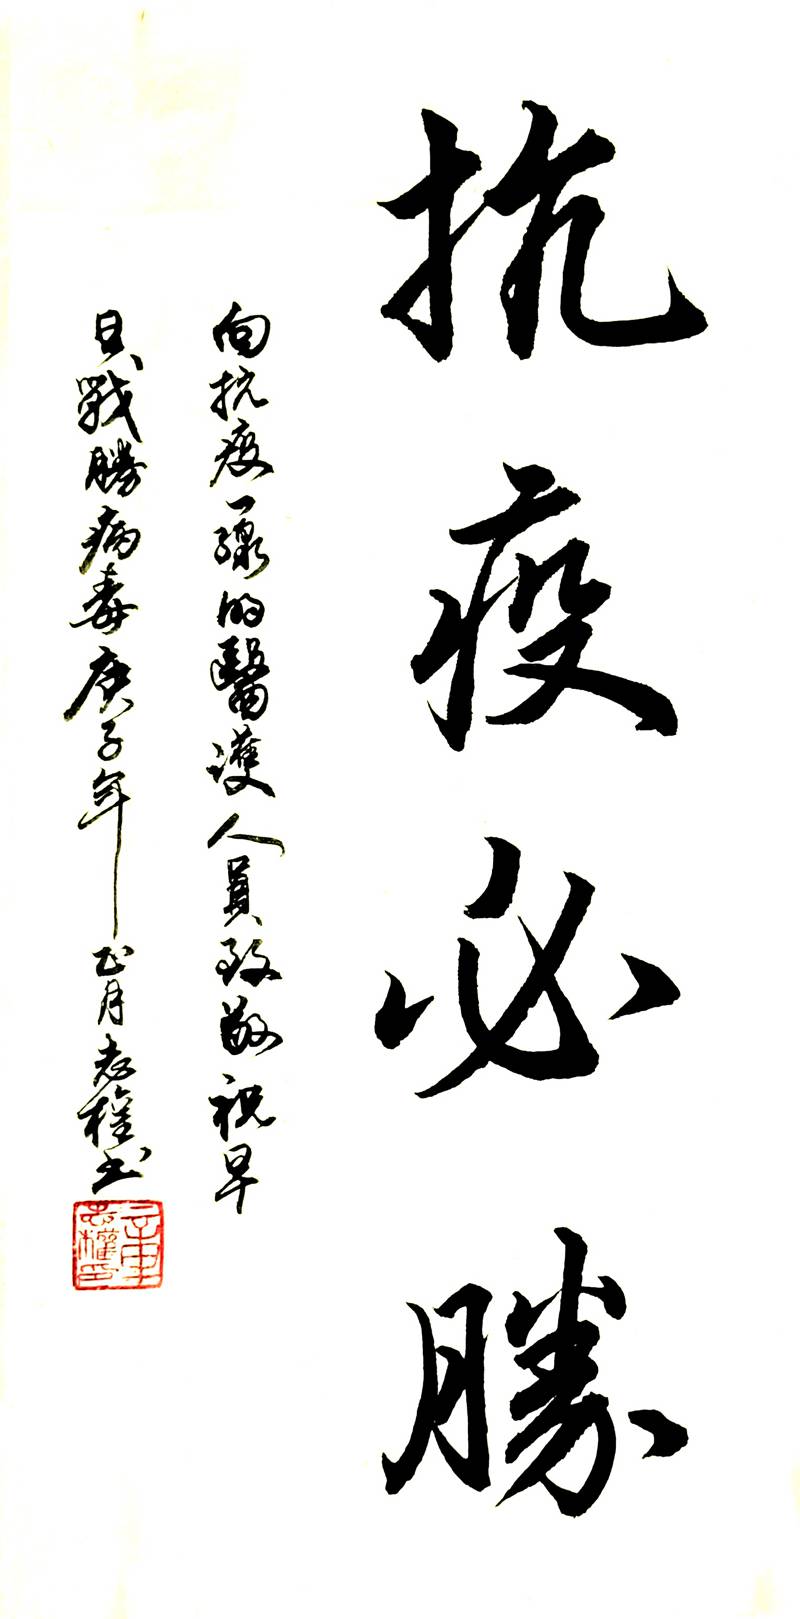 抗疫必勝
向抗疫一線的醫護人員致敬祝早
日戰勝病毒庚子年正月志權书
志權印